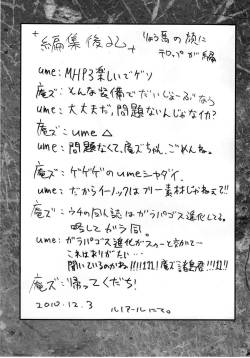 編集後記
ume: MHP3楽しいでゲソ
庵ズ: そんな装備でだいじょーぶなら
ume: 大丈夫だ、問題ないんじゃなイカ?
庵ズ: ume△
ume: 問題なくて、庵ズちゃん、ごめんね。
庵ズ: ゲゲゲのumeシャダイ
ume: だからイーノックはフリー素材じゃねぇて!!
庵ズ: ウチの同人誌はガラパゴス進化してる。
略してガラ同。
ume: ガラパゴス進化が
これはありがたに…
聞いているのかね!!
庵ズ: 帰ってくだち!
2010.12.3 ルノアールにて。